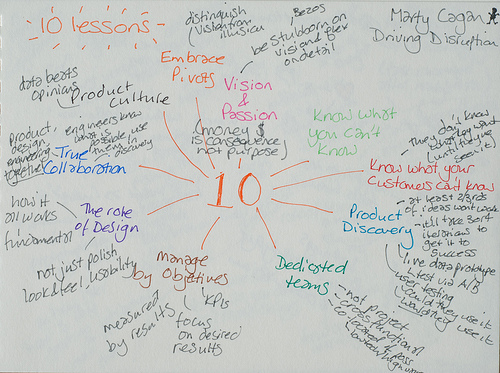 10 lessons
Marty Cagan
Driving Disruption
10
Embrace
Pivots
distinguish
vision from
Vision
&
Passion
Bezos
be stubborn on
vision & flex
on detail
(money $
is consequence
not purpose)
Know what
you can't
Know
Know what your
Customers can't know
they don't know
what they want
(until they've
seen it)
Product
Discovery
- at least 2/3rds
of ideas won't work
- it'll take
iterations to
get it to
success
live data prototype
test via A/B
user testing
could they use it
would they use it
Dedicated
teams
- not project
- cross functional
Manage
by Objectives
KPIs
focus
on desired
results
measured
by results
The role
of Design
how it
all works
fundamental
not just polish
look & feel, usability
True
Collaboration
product,
design,
engineering
together
Product
Culture
data beats
opinions
engineers know
what is
possible, use
them in
discovery